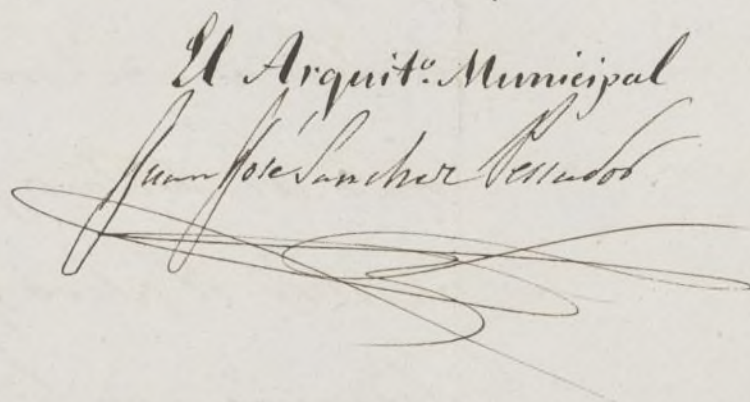 El Arquitº Municipal
Juan José Sanchez Pescador